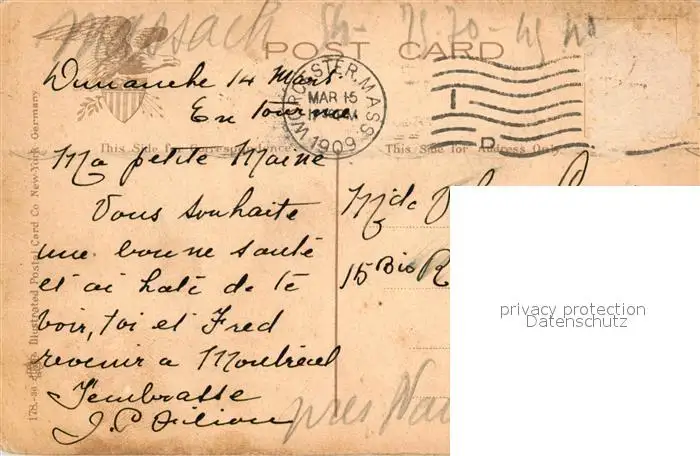 Massach
POST CARD
Dimanche 14 Mars.
En tournée.
WORCESTER, MASS.
MAR 15
1909
This Side for Correspondence.
This Side for Address Only.
Ma petite Maine
Vous souhaite
une bonne santé
et ai hate de te
voir, toi et Fred
revenir a Montreal
J'embrasse
J. P. Filion
Mde
15 Bis R
près
Illustrated Postal Card Co New-York Germany
privacy protection
Datenschutz